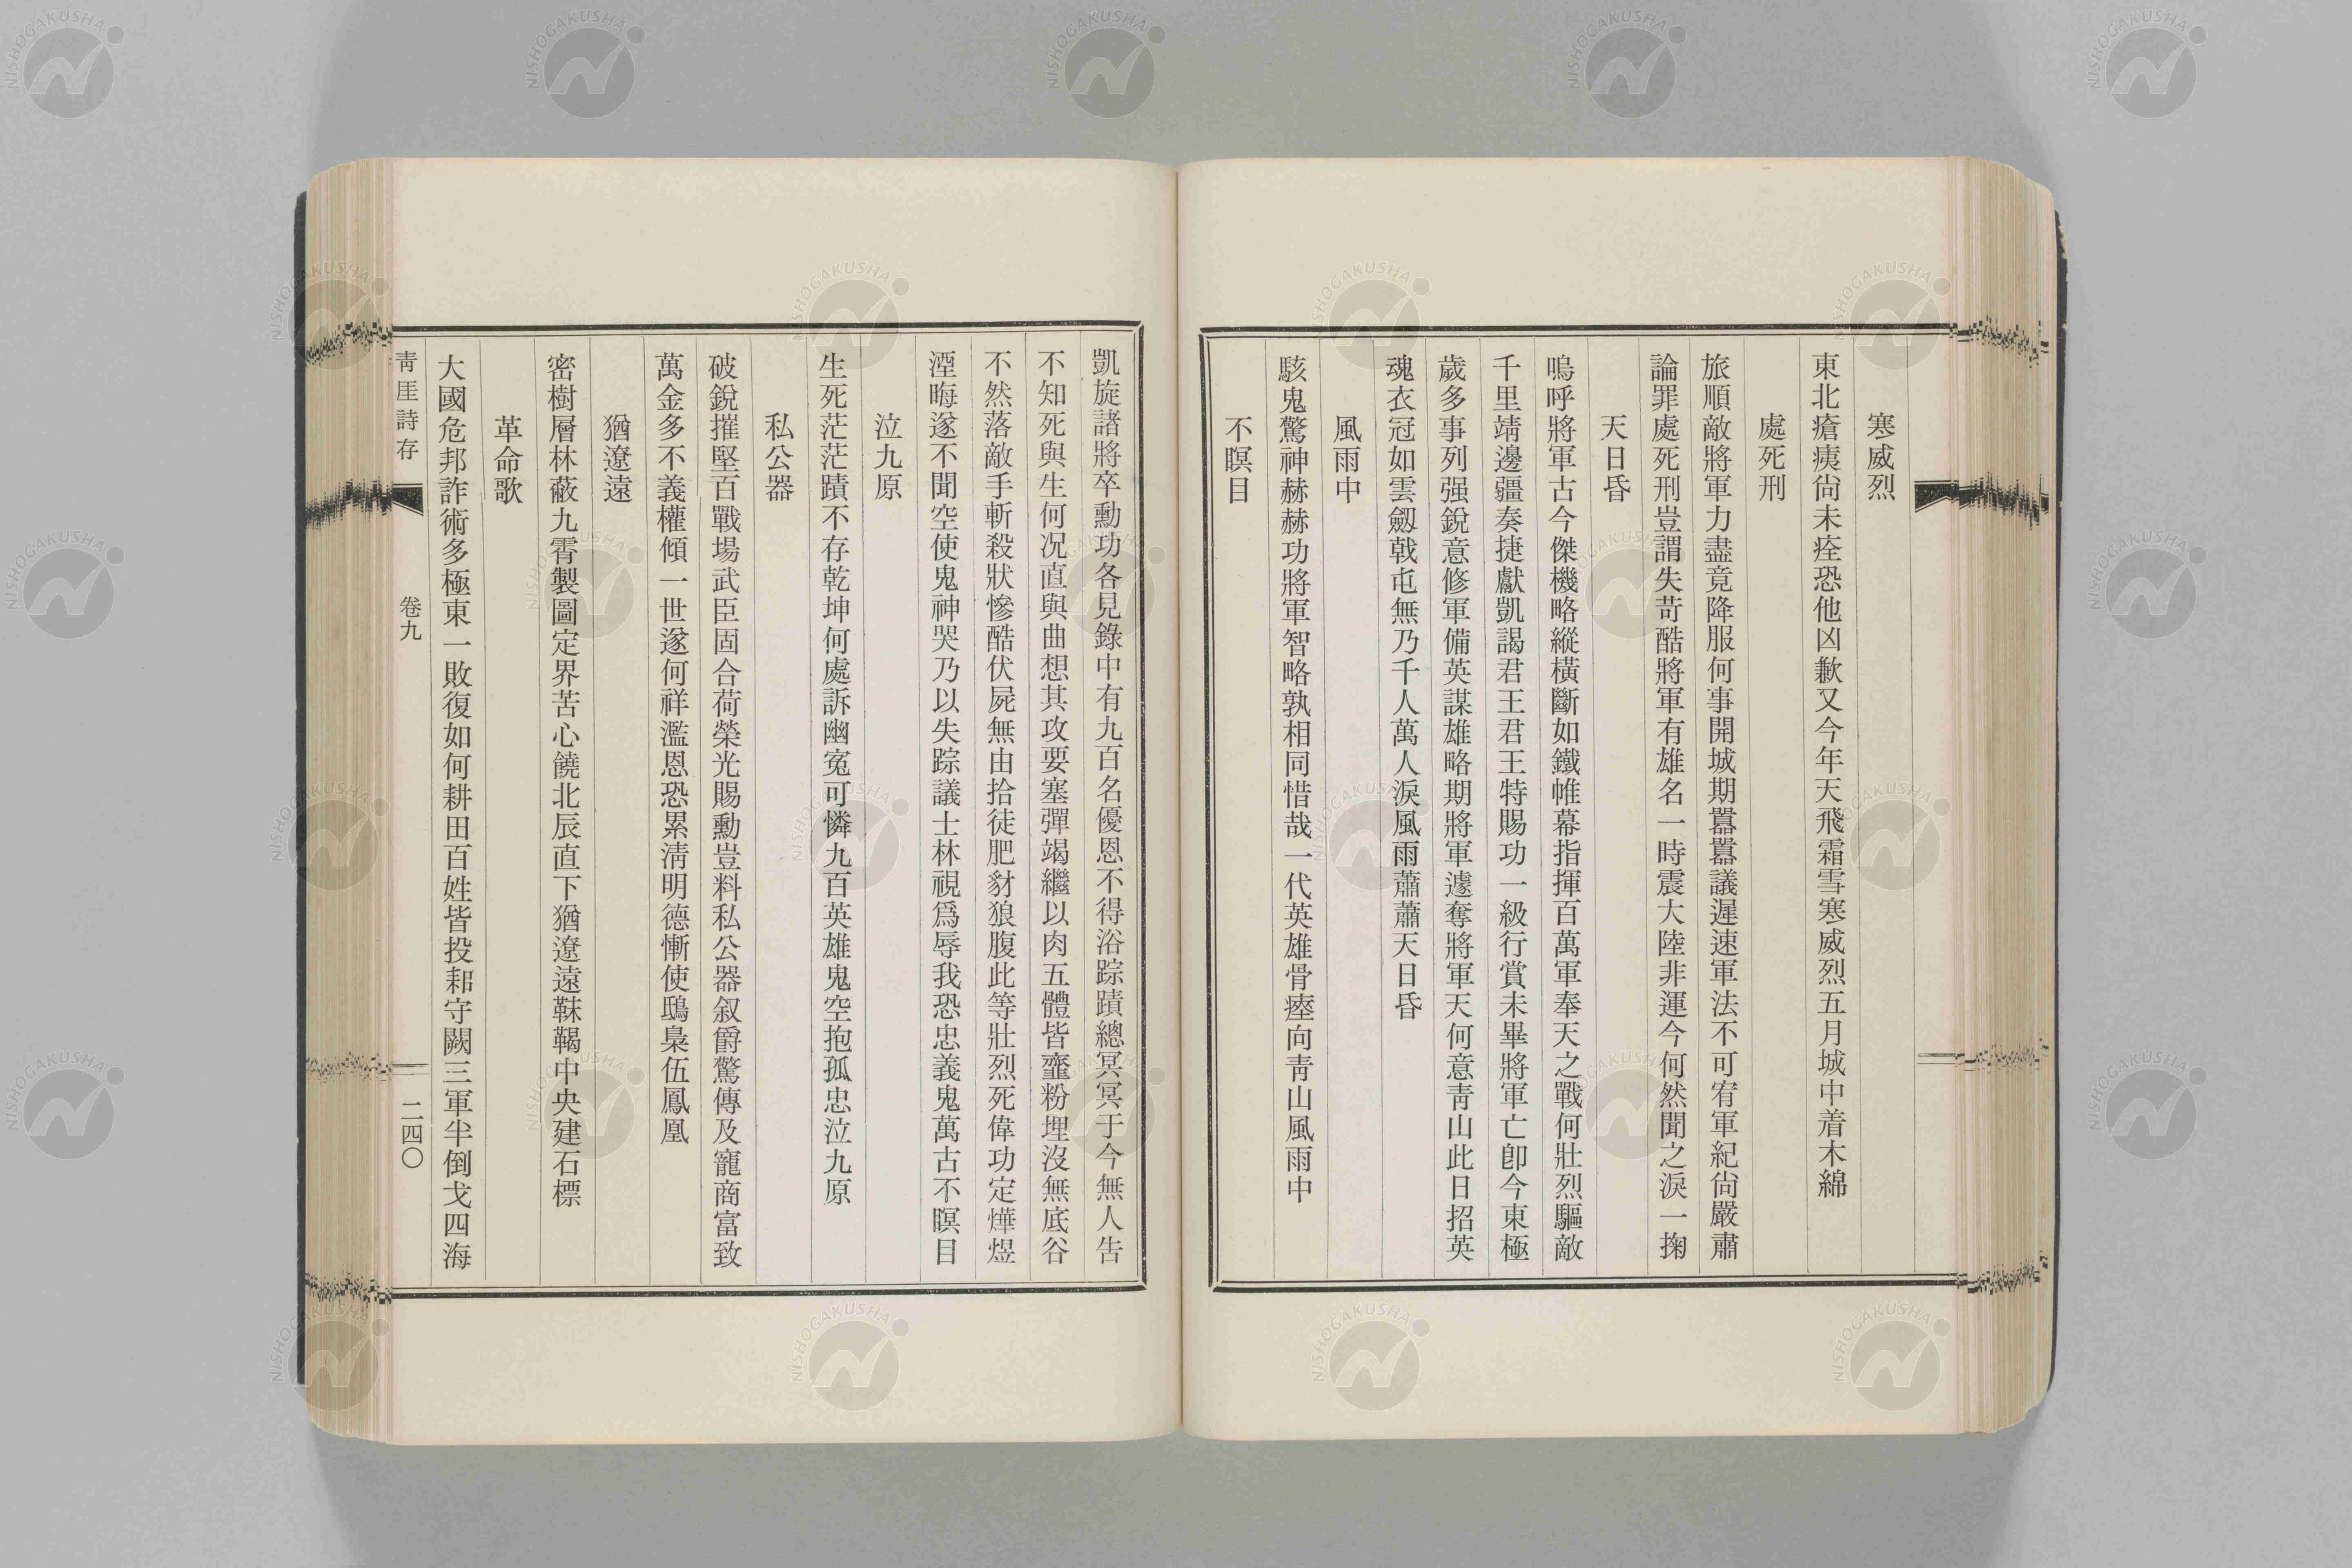 寒威烈
東北瘡痍尙未痊恐他凶歉又今年天飛霜雪寒威烈五月城中着木綿
處死刑
旅順敵將軍力盡竟降服何事開城期囂囂議遲速軍法不可宥軍紀尙嚴肅
論罪處死刑豈謂失苛酷將軍有雄名一時震大陸非運今何然聞之淚一掬
天日昏
嗚呼將軍古今傑機略縱橫斷如鐵帷幕指揮百萬軍奉天之戰何壯烈驅敵
千里靖邊疆奏捷獻凱謁君王君王特賜功一級行賞未畢將軍亡卽今東極
歲多事列强銳意修軍備英謀雄略期將軍遽奪將軍天何意靑山此日招英
魂衣冠如雲劔戟屯無乃千人萬人淚風雨蕭蕭天日昏
風雨中
駭鬼驚神赫赫功將軍智略孰相同惜哉一代英雄骨瘞向靑山風雨中
不瞑目
凱旋諸將卒勳功各見錄中有九百名優恩不得浴踪蹟總冥冥于今無人告
不知死與生何况直與曲想其攻要塞彈竭繼以肉五體皆虀粉埋沒無底谷
不然落敵手斬殺狀慘酷伏屍無由拾徒肥豺狼腹此等壯烈死偉功定燁煜
湮晦遂不聞空使鬼神哭乃以失踪議士林視爲辱我恐忠義鬼萬古不瞑目
泣九原
生死茫茫蹟不存乾坤何處訴幽寃可憐九百英雄鬼空抱孤忠泣九原
私公器
破銳摧堅百戰場武臣固合荷榮光賜勳豈料私公器叙爵驚傳及寵商富致
萬金多不義權傾一世遂何祥濫恩恐累淸明德慚使鴟梟伍鳳凰
猶遼遠
密樹層林蔽九霄製圖定界苦心饒北辰直下猶遼遠靺鞨中央建石標
革命歌
大國危邦詐術多極東一敗復如何耕田百姓皆投耜守闕三軍半倒戈四海
靑厓詩存
卷九
二四〇
NISHOGAKUSHA